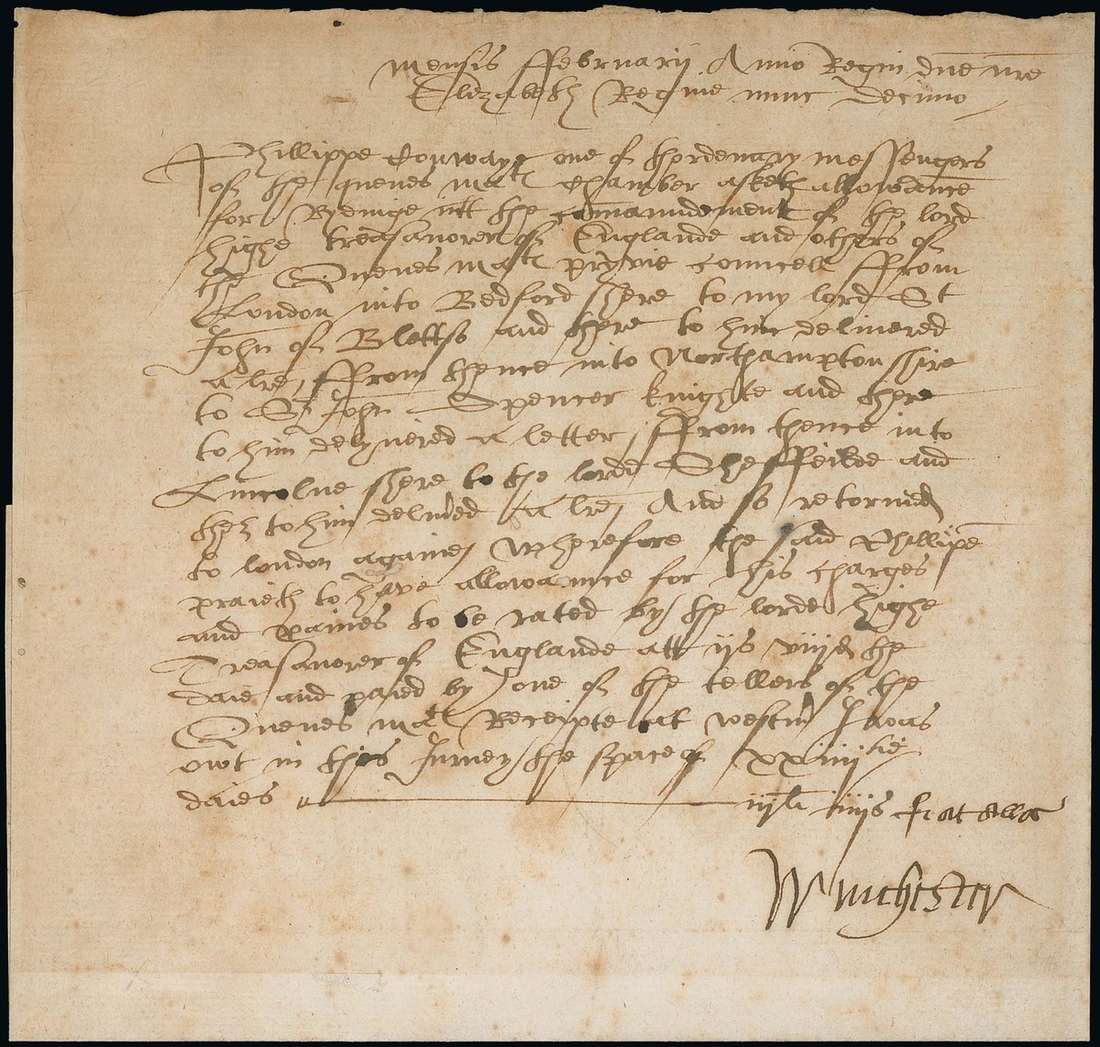 mensis ffebruarij Anno Regni dne nre
Elizabeth Regine nunc decimo
Phillippe Conwaye one of thordenary messengers
of the quenes matｓ chamber asketh allowance
for Rydinge att the comaundement of the lord
highe treasaurer of Englande and others of
the Quenes mats pryvie councell ffrom
London into Bedford shere to my lord St
John of Blettso and there to him delivered
a lre, ffrom thence into Northampton shire
to Sr John Spencer knighte and there
to him delyvered a letter, ffrom thence into
Lincolne shere to the lord Sheffeilde and
ther to him delivred a lre, And so retorned
to london againe, Wherefore the said Phillipe
praieth to have allowance for his charges
and paines to be rated by the lorde highe
Treasaurer of Englande att ijs viijd the
daie and paied by one of the tellers of the
Quenes mats Receipte at westm
owt in this Jurney the space of xxiiij
daies iijli iiijs
Winchester